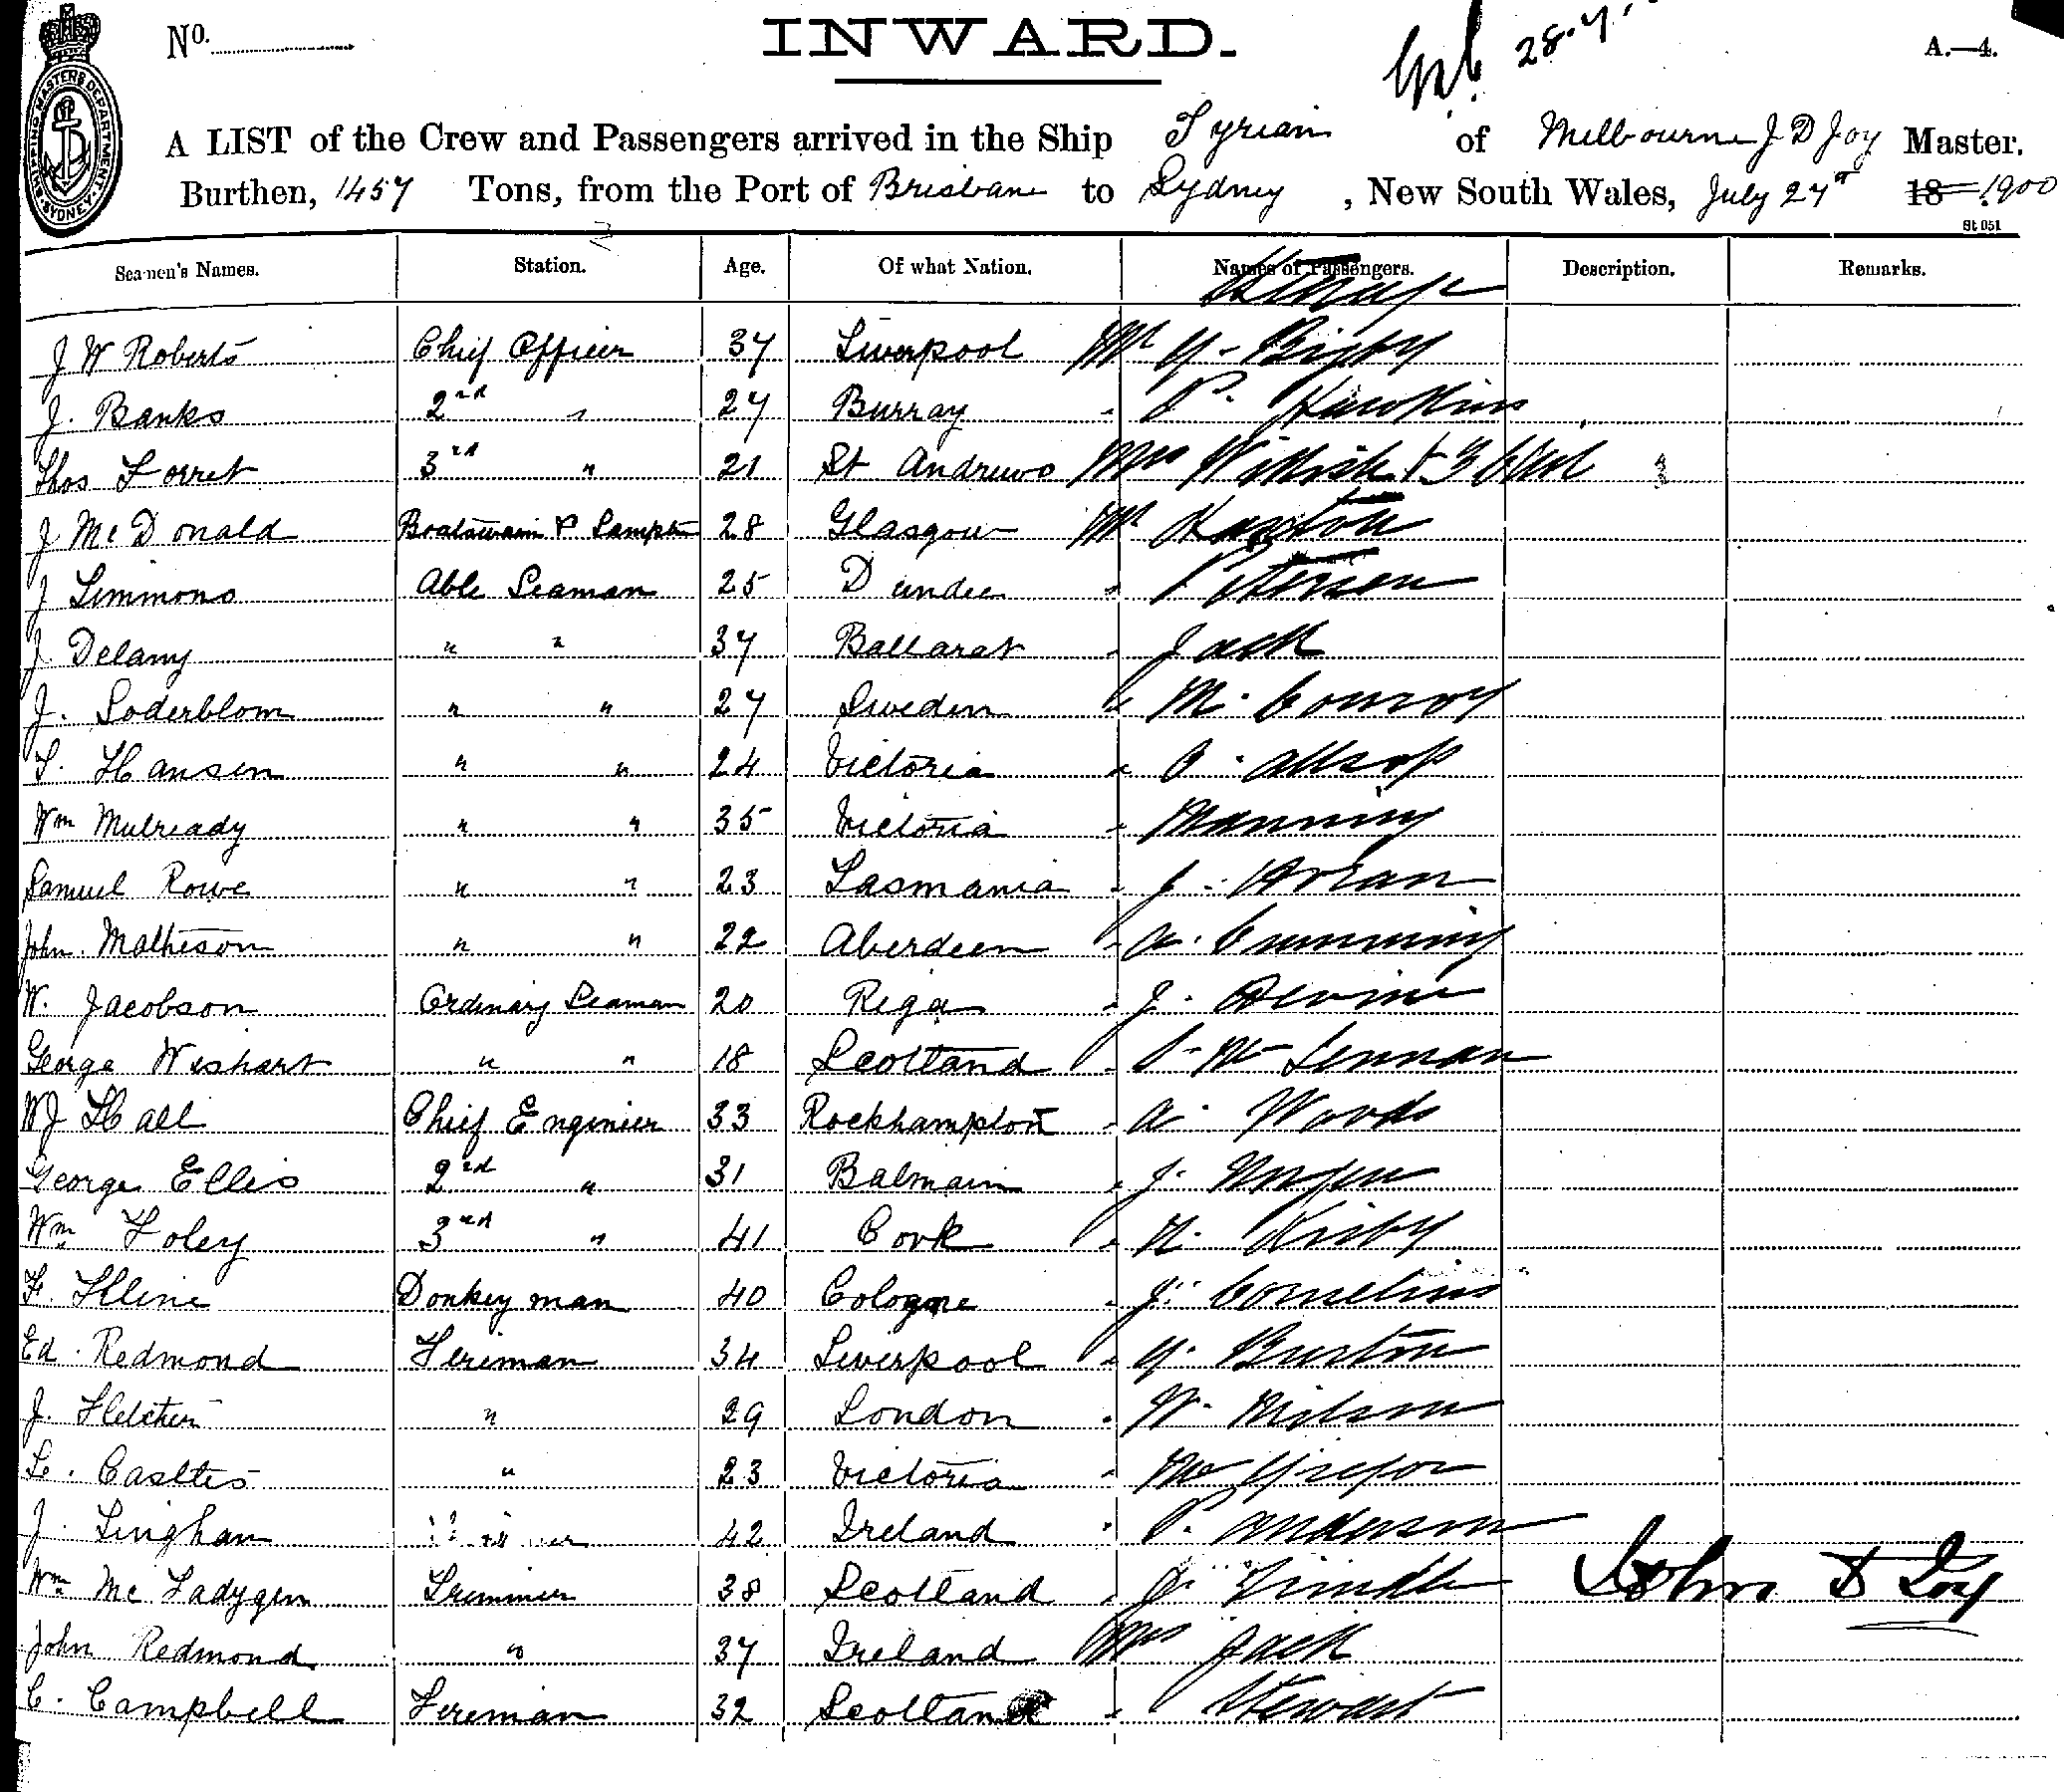 No. INWARD. 28.7. A.—4.
SHIPPING MASTERS DEPARTMENT. SYDNEY.
A LIST of the Crew and Passengers arrived in the Ship Tyrian of Melbourne J D Joy Master.
Burthen, 1457 Tons, from the Port of Brisbane to Sydney, New South Wales, July 27th 18 1900
St 051
Seamen's Names. Station. Age. Of what Nation. Names of Passengers. Description. Remarks.
Steerage
J W Roberts Chief Officer 37 Liverpool Mr G. Bigby
J. Banks 2nd " 27 Burray " P. Hawkins
Thos Forret 3rd " 21 St Andrews Mrs & 3 Chil
J McDonald Boatswain & Lamps 28 Glasgow Mr
J Simmons Able Seaman 25 Dundee " Peterson
J. Delany " " 37 Ballarat " Jack
J. Soderblom " " 27 Sweden " M. Conroy
S. Hansen " " 24 Victoria " A. Allsop
Wm Mulready " " 35 Victoria " Manning
Samuel Rowe " " 23 Tasmania " J. Horan
John Matheson " " 22 Aberdeen " A. Cumming
W. Jacobson Ordinary Seaman 20 Riga " J. Devine
George Wishart " " 18 Scotland " Lennan
WJ Hall Chief Engineer 33 Rockhampton " A. Woods
George Ellis 2nd " 31 Balmain " J.
Wm Foley 3rd " 41 Cork " H. Kirby
F. Kline Donkey man 40 Cologne " J. Cornelius
Ed. Redmond Fireman 34 Liverpool " G. Burton
J. Fletcher " 29 London " W. Wilson
L. Casltes " 23 Victoria " McGregor
J. Linghan 42 Ireland " P. Anderson
Wm Mc Fadygen Trimmer 38 Scotland " J.
John Redmond " 37 Ireland Mrs Jack
C. Campbell Fireman 32 Scotland " Stewart
John D Joy